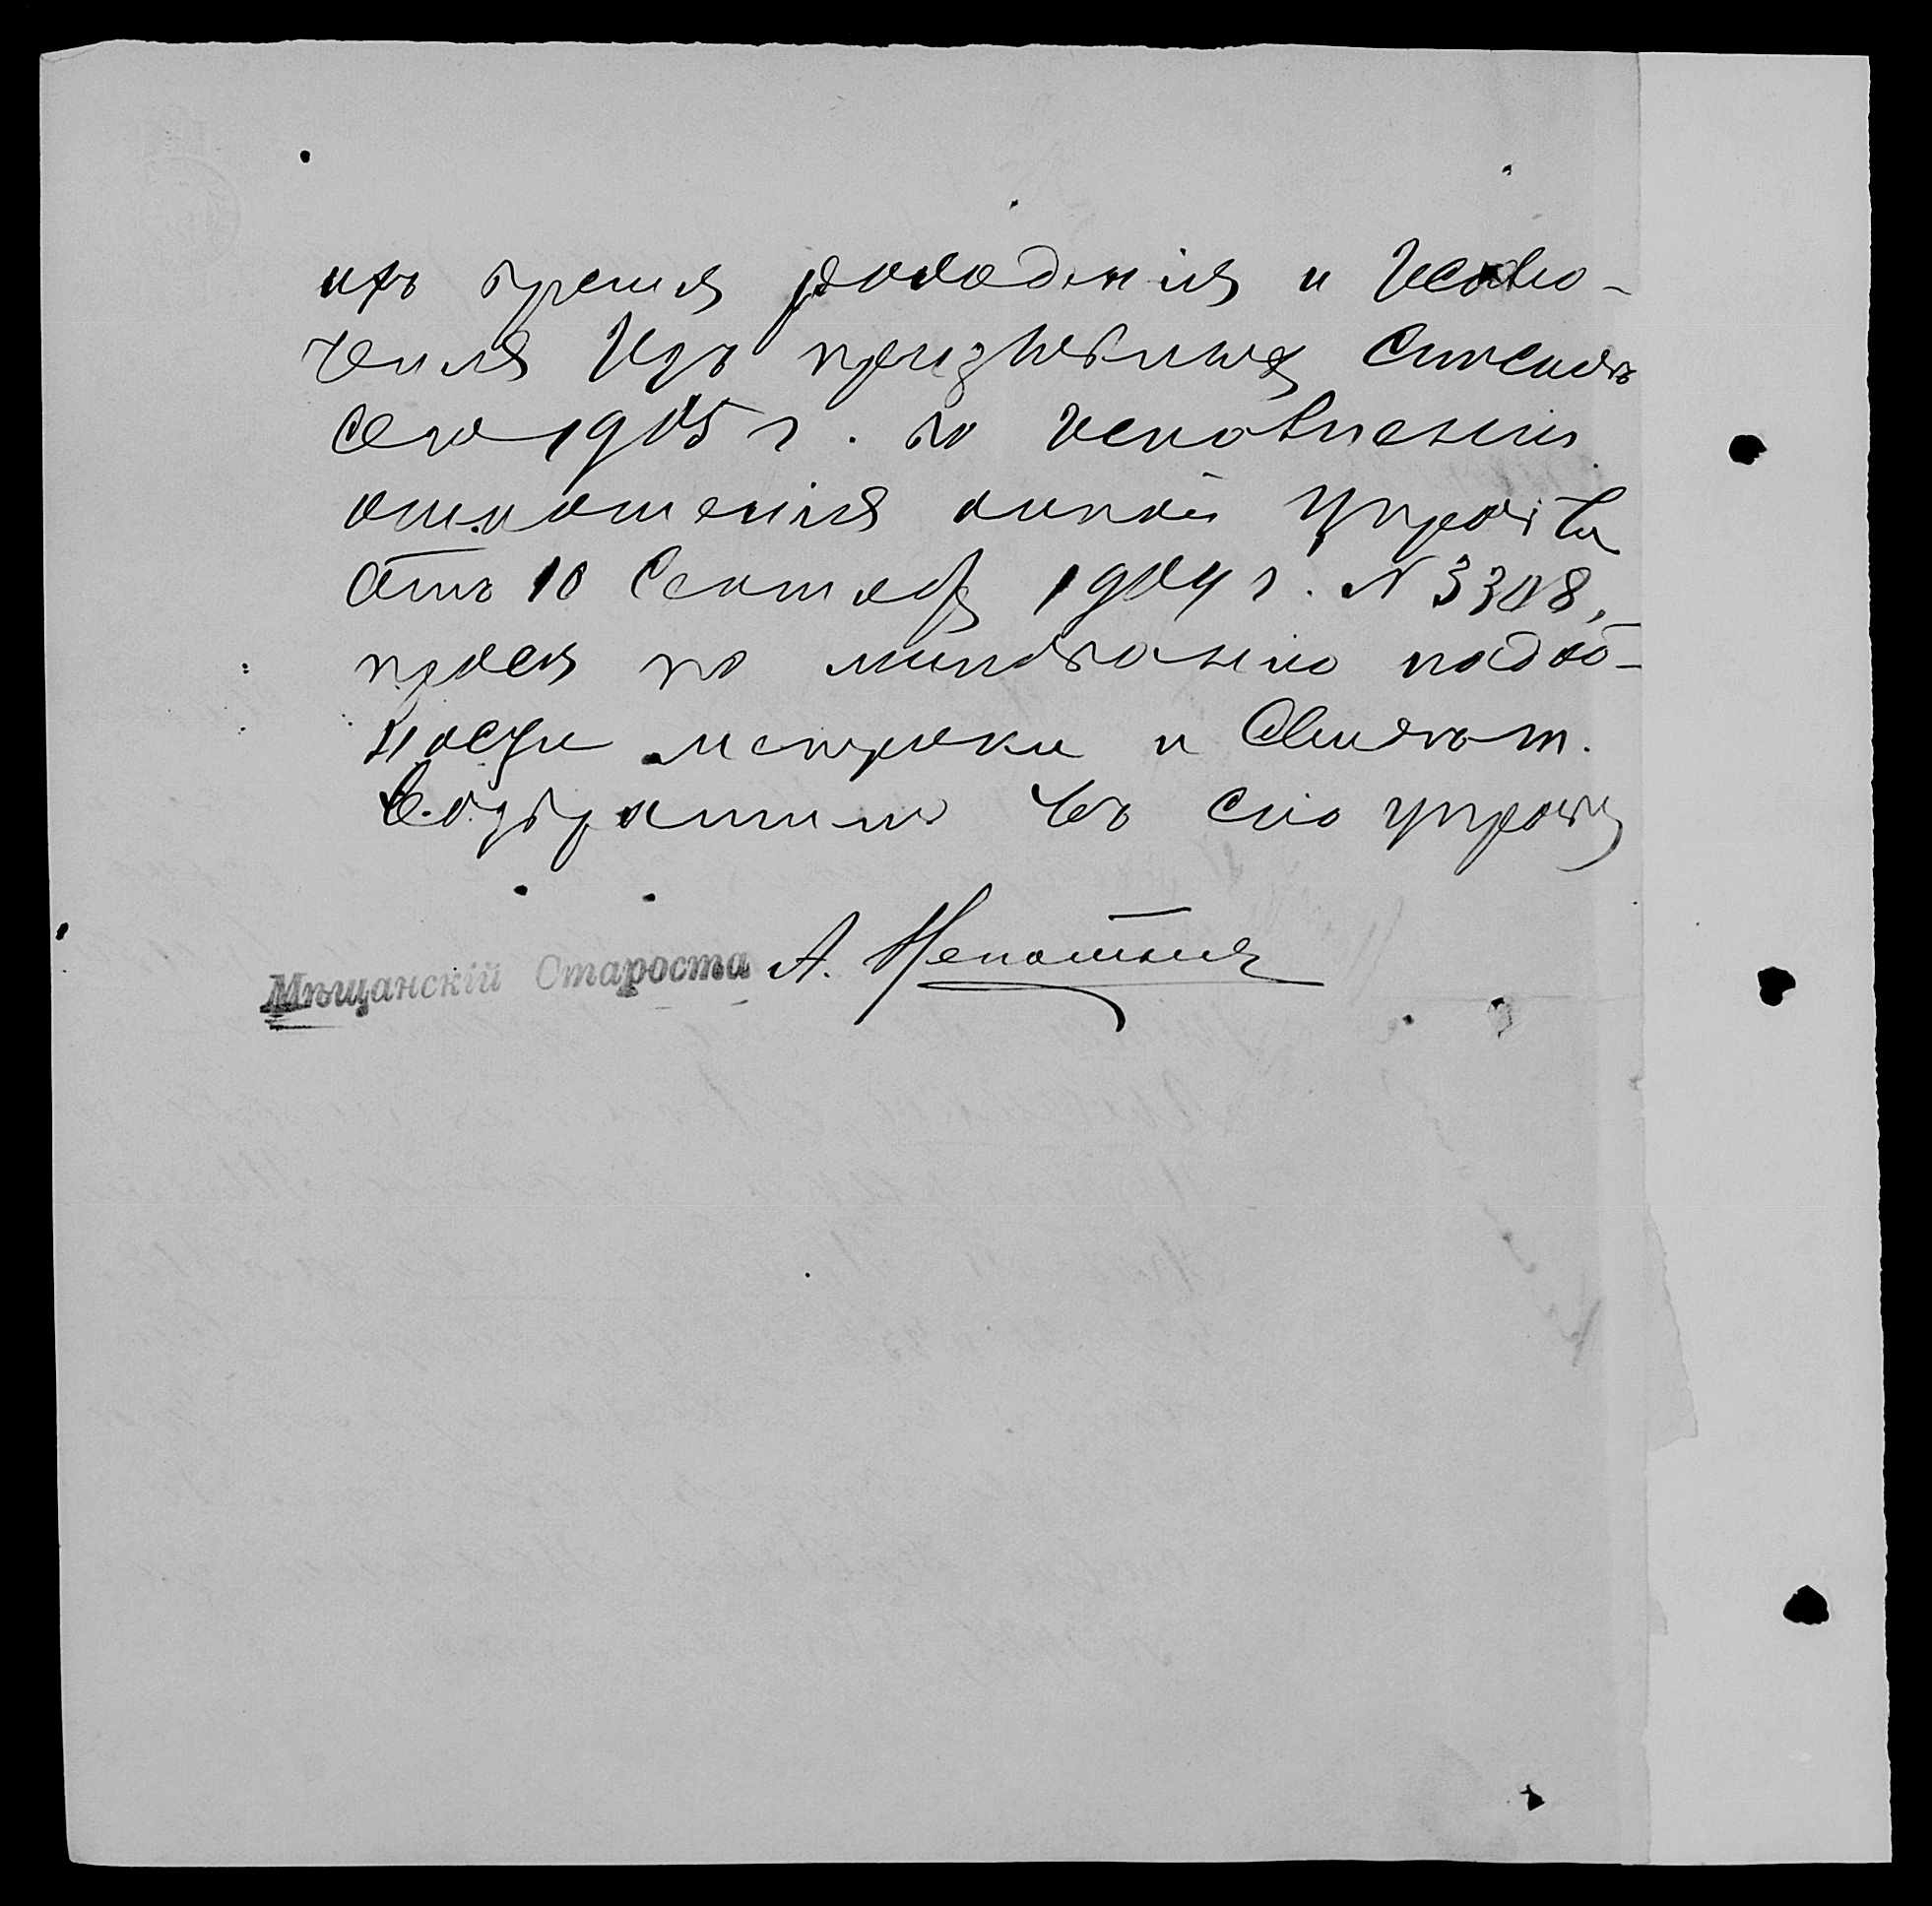 ихъ время рожденія и исклю-
ченія изъ призывныхъ списковъ
сего 1905 г. во исполненіи
отношенія оной управы
отъ 10 Сентяб 1904 г. N 3308,
прося по миновanію надоб-
ности метрики и
возвратить въ сію управу
Мѣщанскій Староста А.